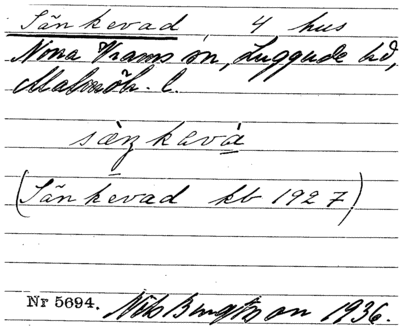 Sånkevad, 4 hus
Norra Vrams sn, Luggude hd,
Malmöh. l.
sàŋkavà
(Sånkevad kb 1927)
Nr 5694. Nils Bengtsson 1936.